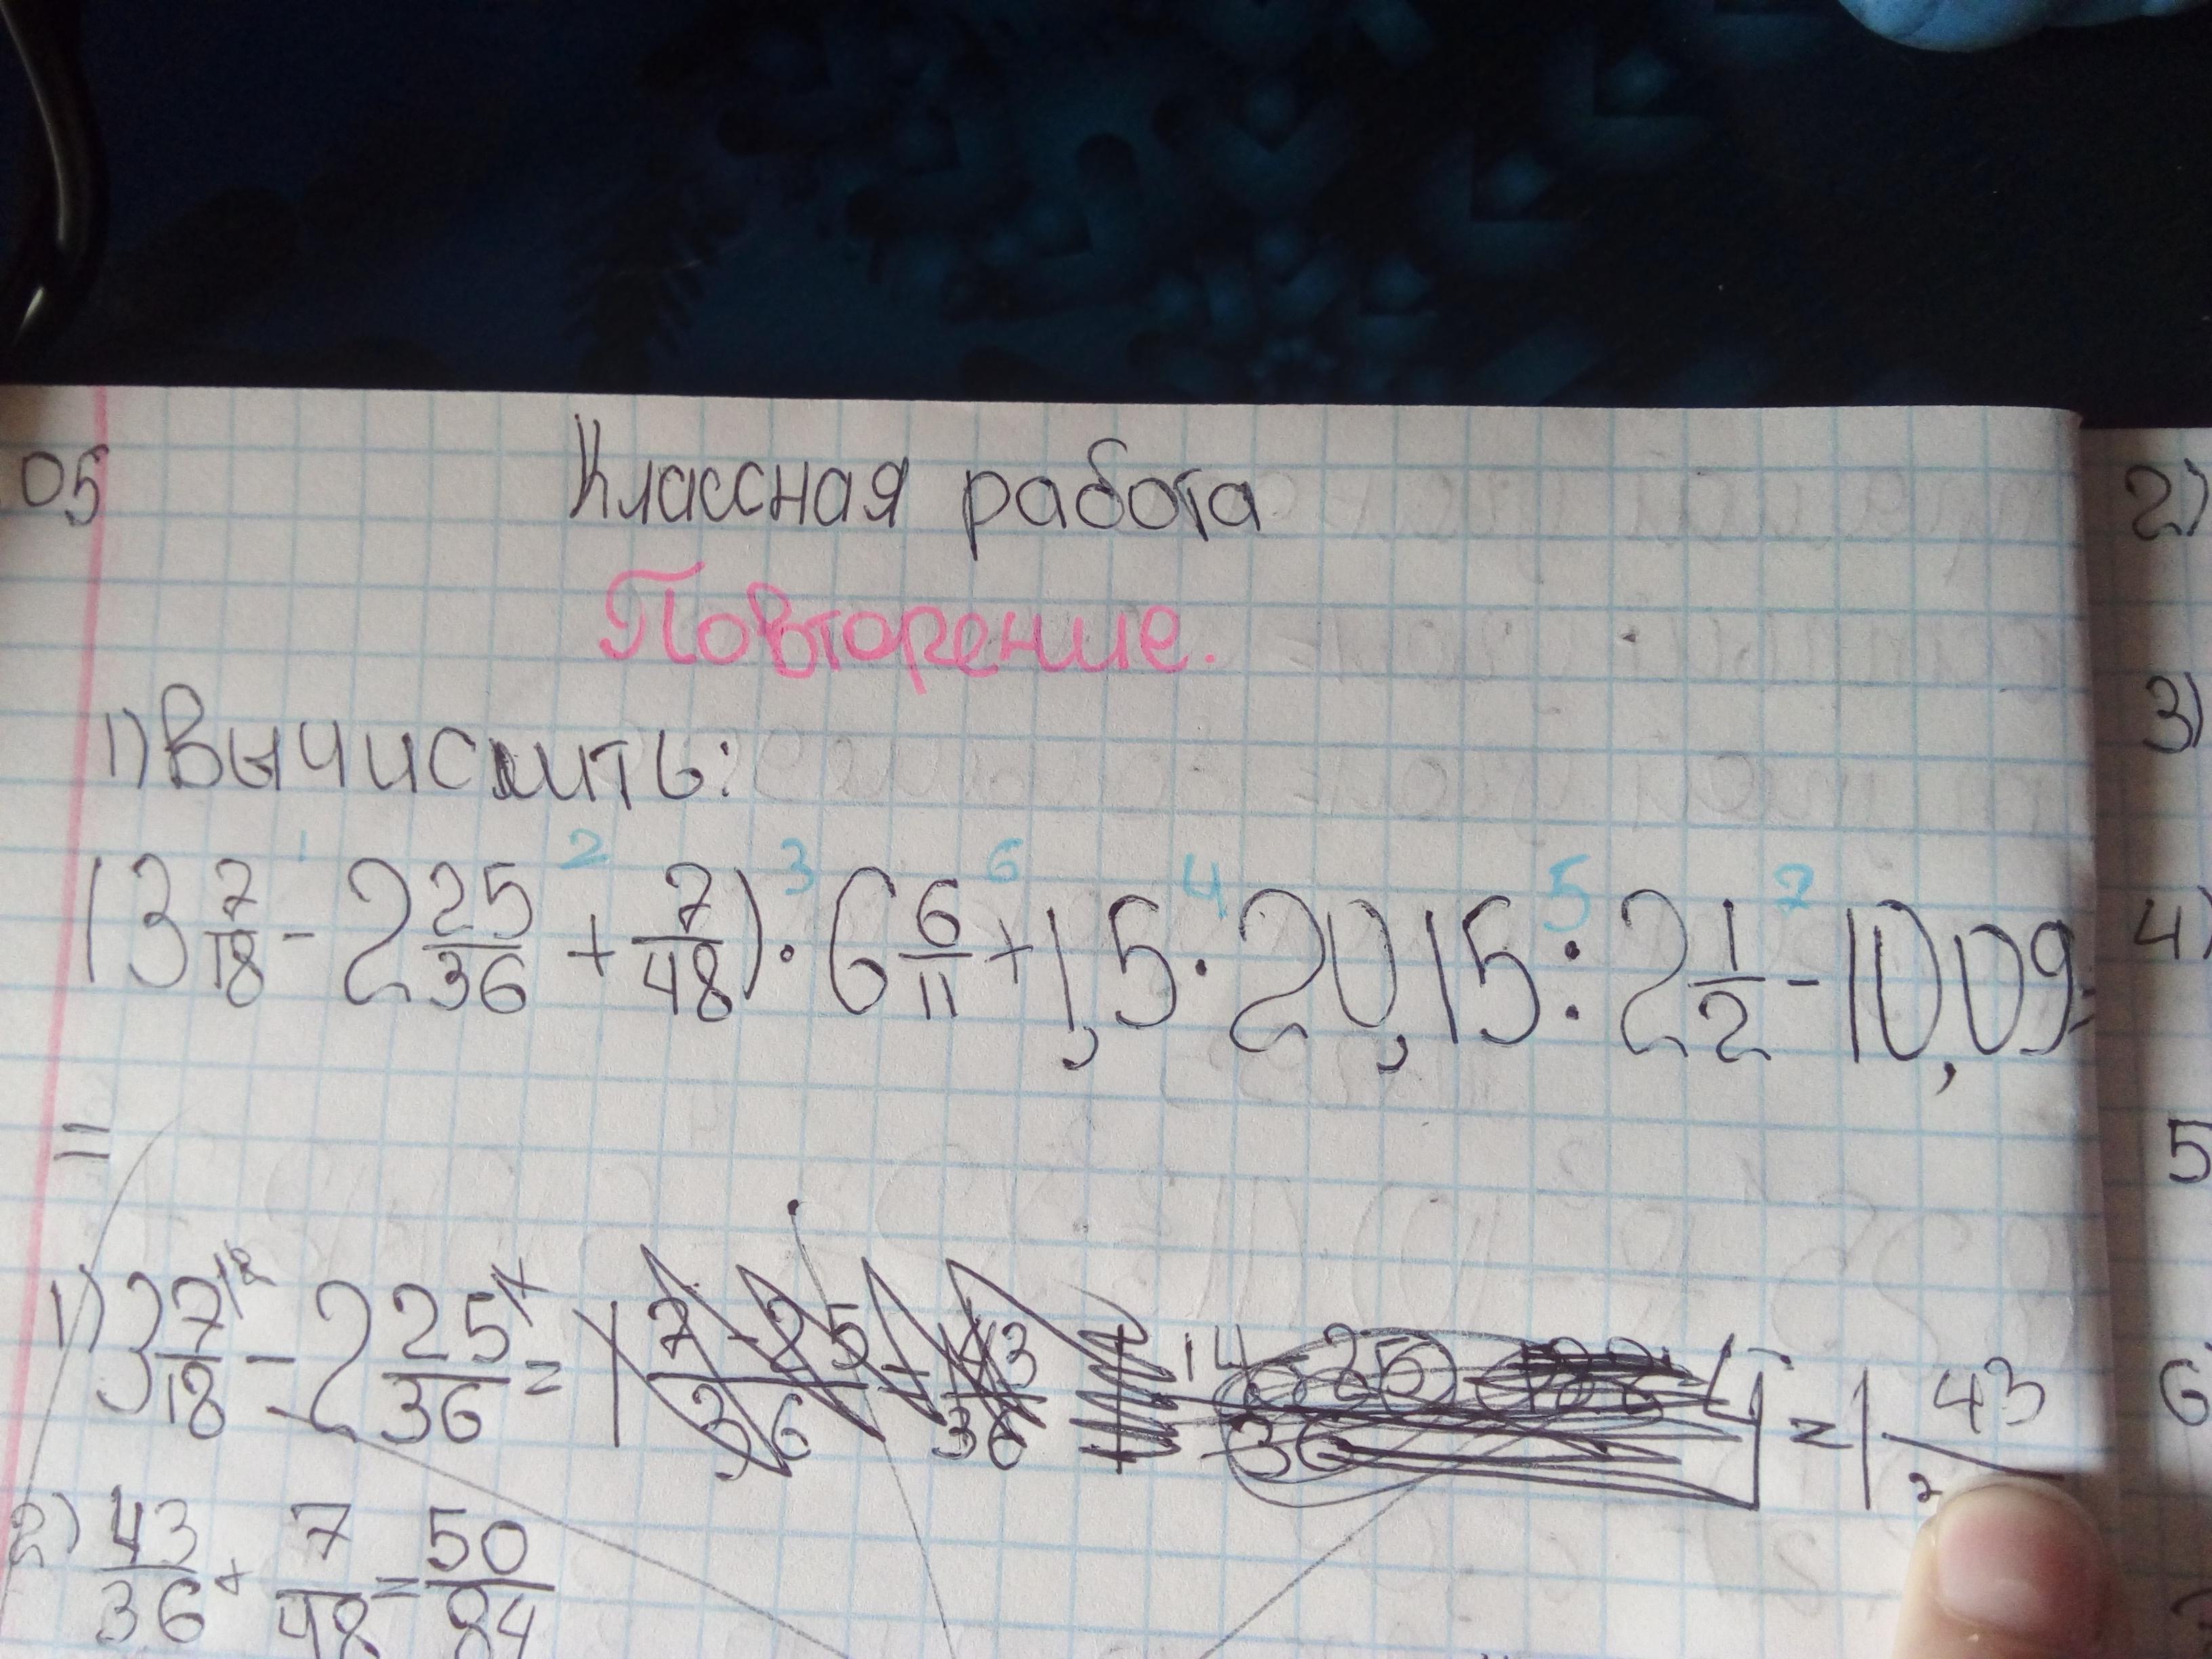 05
Классная работа
Повторение.
1) Вычислить:
1 2 3 6 4 5 7
(3 7/18 - 2 25/36 + 7/48) · 6 6/11 + 1,5 · 20,15 : 2 1/2 - 10,09 =
=
1) 3 7/18 - 2 25/36 = = 1 43
2) 43/36 + 7/48 = 50/84
2)
3)
4)
5
6